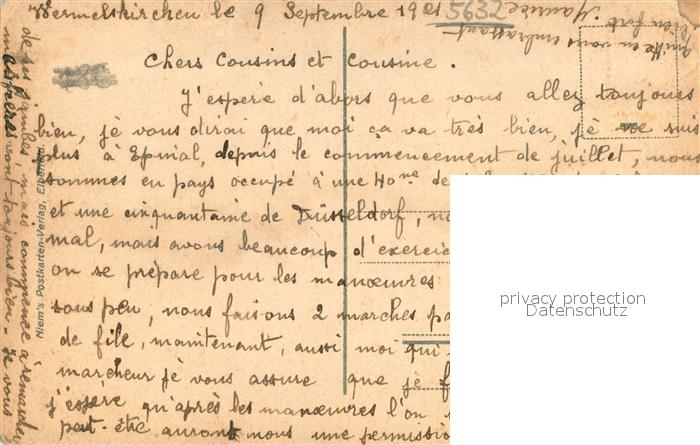 Wermelskirchen le 9 Septembre 1921
5632
Chers Cousins et Cousine.
J'espère d'abors que vous allez toujours
bien, je vous dirai que moi ça va très bien, je ne suis
plus à Epinal, depuis le commencement de juillet, nous
sommes en pays occupé à une 40ne de
et une cinquantaine de Düsseldorf,
mal, mais avons beaucoup d'exercic
on se prépare pour les manœuvres
sous peu, nous faisons 2 marches pa
de file, maintenant, aussi moi qui
marcheur je vous assure que je f
j'espère qu'après les manœuvres l'on
peut-être auront nous une permissio
de ses jambes, mais commence à remarcher
vont toujours bien - Je vous
quitte en vous embrassant
bien fort
Maurice
Niem's Postkarten-Verlag, Elberfeld
privacy protection
Datenschutz